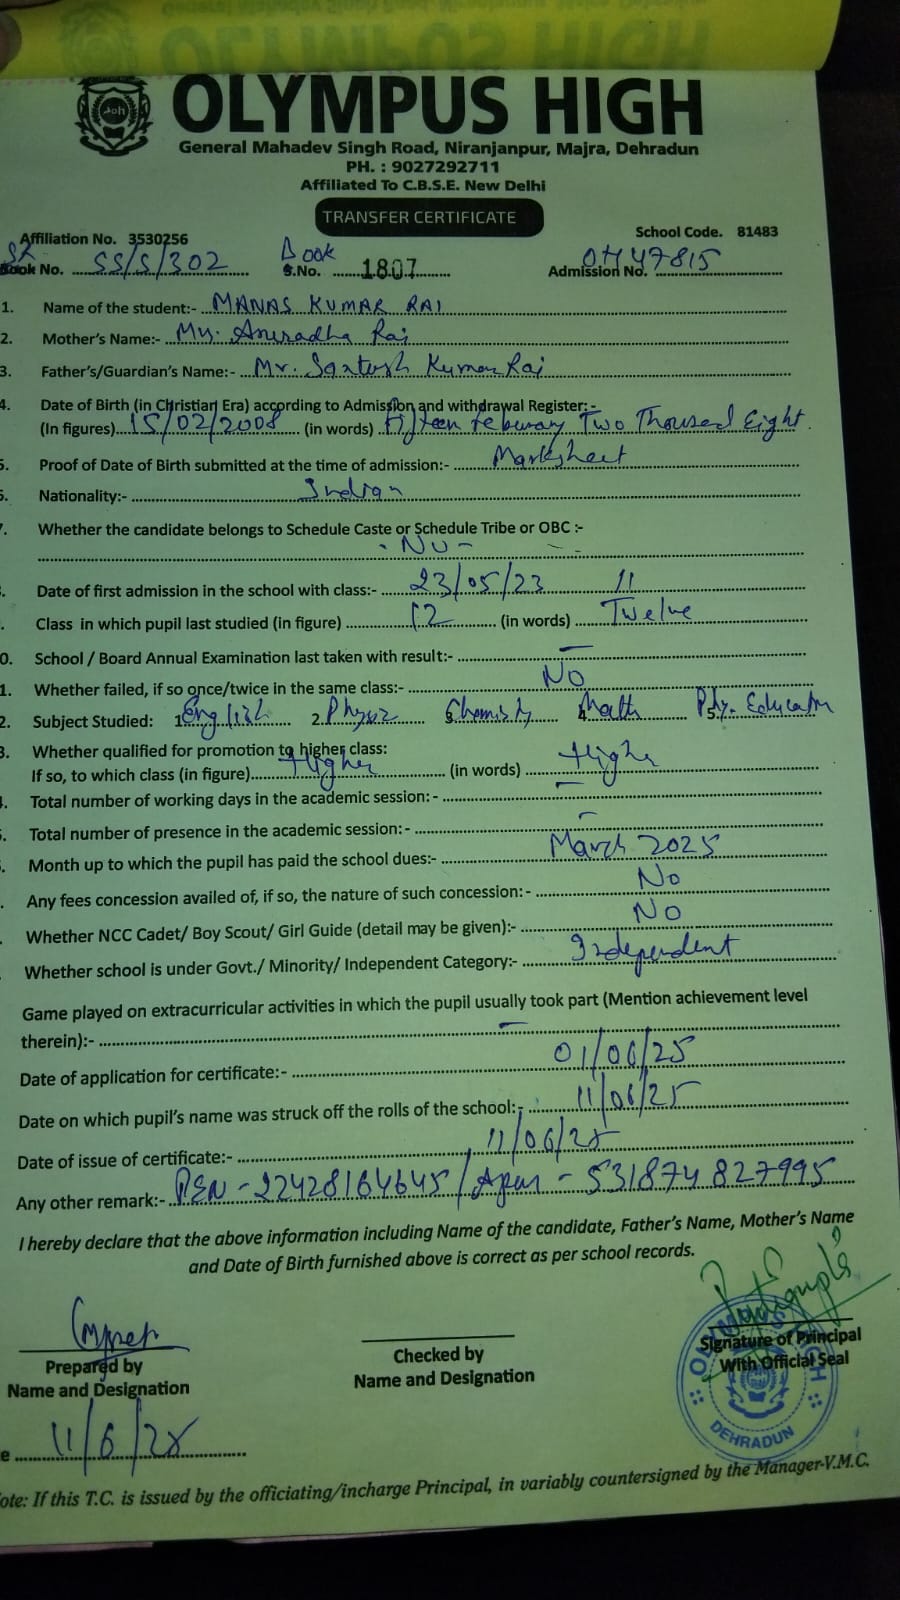 OLYMPUS HIGH
General Mahadev Singh Road, Niranjanpur, Majra, Dehradun
PH. : 9027292711
Affiliated To C.B.S.E. New Delhi
TRANSFER CERTIFICATE
Affiliation No. 3530256 School Code. 81483
Book No. SS/S/302 Book S.No. 1807 Admission No. OH47815
1. Name of the student:- MANAS KUMAR RAI
2. Mother's Name:- Anuradha Rai
3. Father's/Guardian's Name:- Mr. Santosh Kumar Rai
4. Date of Birth (in Christian Era) according to Admission and withdrawal Register:-
(In figures) 15/02/2008 (in words) Fifteen Two Thousand Eight.
5. Proof of Date of Birth submitted at the time of admission:- Marksheet
Nationality:- Indian
Whether the candidate belongs to Schedule Caste or Schedule Tribe or OBC :-
- No -
Date of first admission in the school with class:- 23/05/23 11
Class in which pupil last studied (in figure) 12 (in words) Twelve
0. School / Board Annual Examination last taken with result:- —
1. Whether failed, if so once/twice in the same class:- No
2. Subject Studied: 1. English 2. 3. 4. Math 5. Phy.
3. Whether qualified for promotion to higher class:
If so, to which class (in figure) Higher (in words)
Total number of working days in the academic session: - —
Total number of presence in the academic session: - —
Month up to which the pupil has paid the school dues:- March 2025
Any fees concession availed of, if so, the nature of such concession: - No
Whether NCC Cadet/ Boy Scout/ Girl Guide (detail may be given):- No
Whether school is under Govt./ Minority/ Independent Category:- Independent
Game played on extracurricular activities in which the pupil usually took part (Mention achievement level
therein):- —
Date of application for certificate:- 01/06/25
Date on which pupil's name was struck off the rolls of the school:- 11/06/25
Date of issue of certificate:- 11/06/25
Any other remark:- PEN - 22428164645 / Apar - 531874827995
I hereby declare that the above information including Name of the candidate, Father's Name, Mother's Name
and Date of Birth furnished above is correct as per school records.
Prepared by
Name and Designation
Checked by
Name and Designation
Signature of Principal
With Official Seal
DEHRADUN
11/6/25
ote: If this T.C. is issued by the officiating/incharge Principal, in variably countersigned by the Manager-V.M.C.